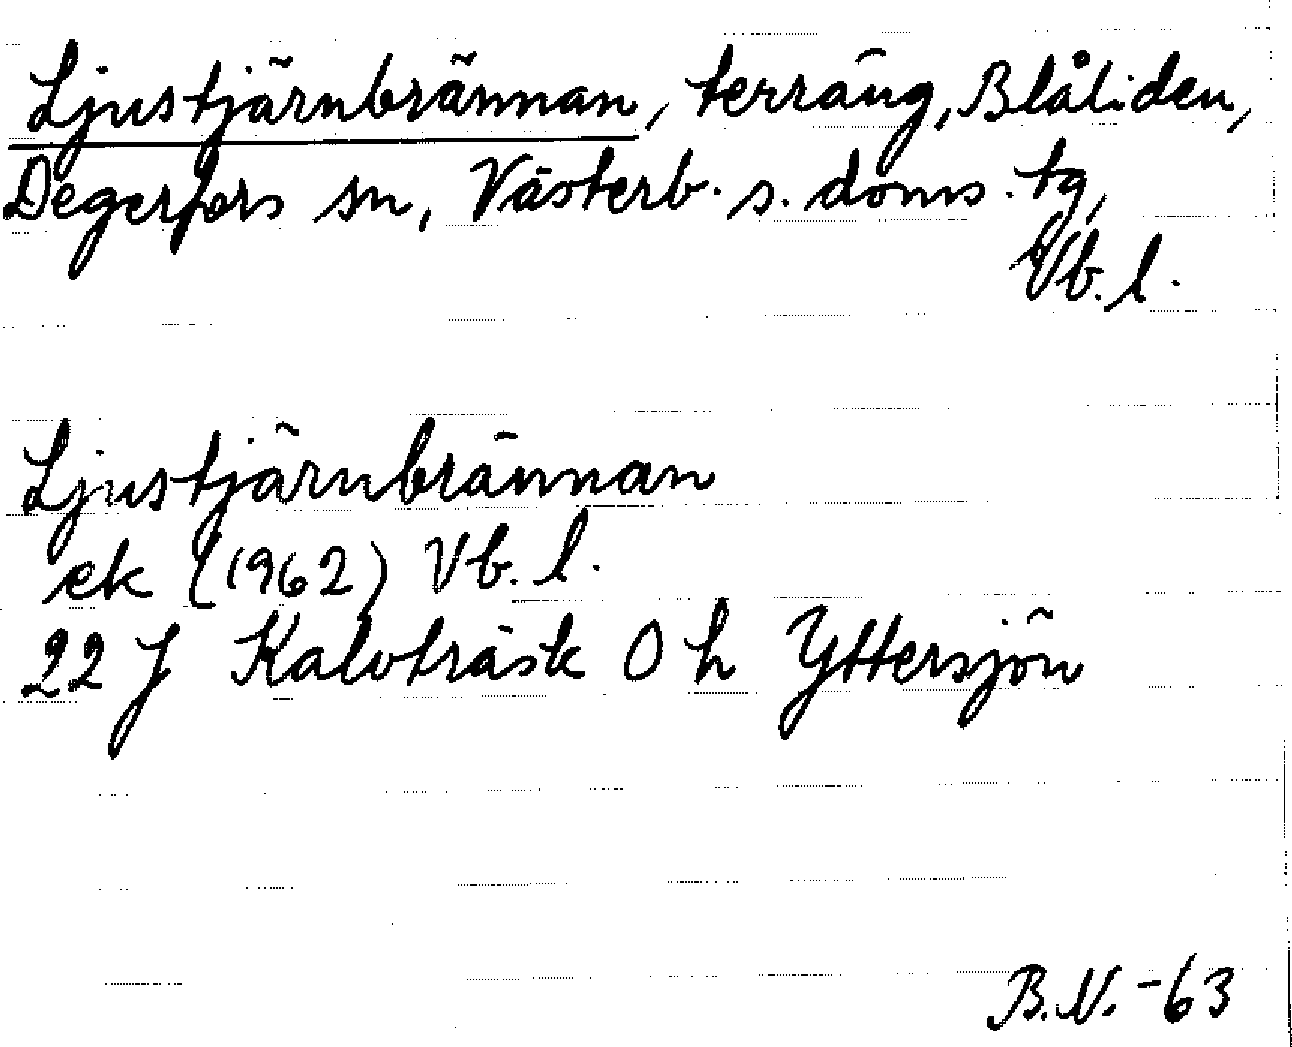 Ljustjärnbrännan, terräng, Blåliden,
Degerfors sn, Västerb. s. doms. tg,
Vb. l.
Ljustjärnbrännan
ek (1962) Vb. l.
22 J Kalvträsk 0 h Yttersjön
B.N. -63